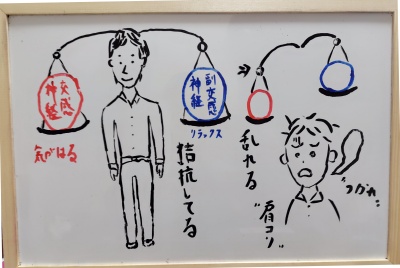 交感
神経
気がはる
副交感
神経
リラックス
拮抗してる
乱れる
"肩コリ"
"つかれ"